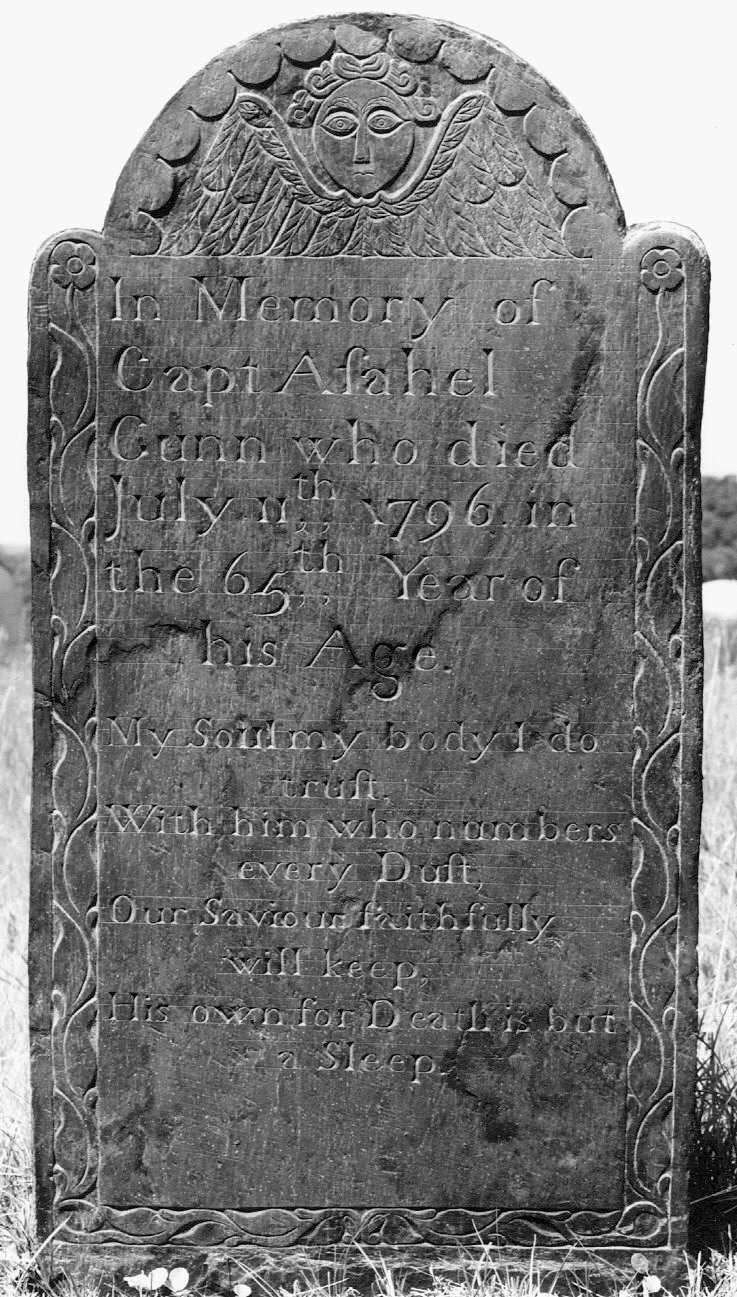 In Memory of
Capt Aſahel
Gunn who died
July 11,,th 1796. in
the 65,,th Year of
his Age.
My Soul my body I do
truſt,
With him who numbers
every Duſt,
Our Saviour faithfully
will keep,
His own for Death is but
a Sleep.